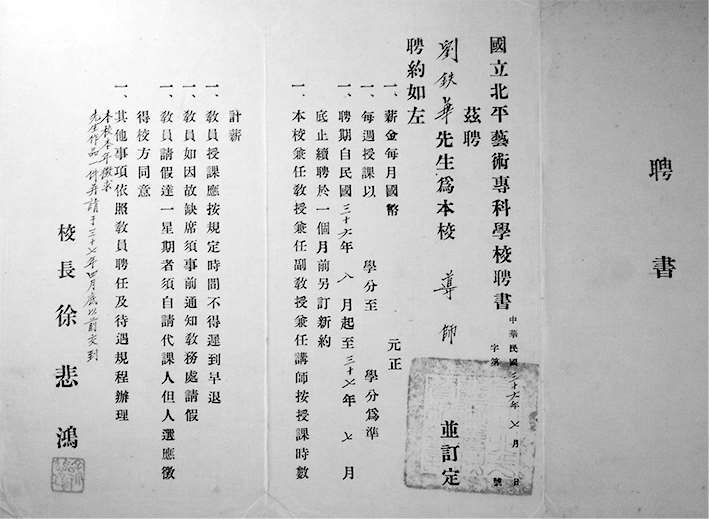 聘書
國立北平藝術專科學校聘書
中華民國三十六年七月 日
字第 號
茲聘
劉鉄華先生爲本校 導師 並訂定
聘約如左
一、薪金每月國幣 元正
一、每週授課以 學分至 學分爲準
一、聘期自民國三十六年八月起至三十七年七月
底止續聘於一個月前另訂新約
一、本校兼任教授兼任副教授兼任講師按授課時數
計薪
一、教員授課應按規定時間不得遲到早退
一、教員如因故缺席須事前通知教務處請假
一、教員請假達一星期者須自請代課人但人選應徵
得校方同意
一、其他事項依照教員聘任及待遇規程辦理
本校本年徵求
先生作品一件并請于三十七年四月底以前交到
校長徐悲鴻